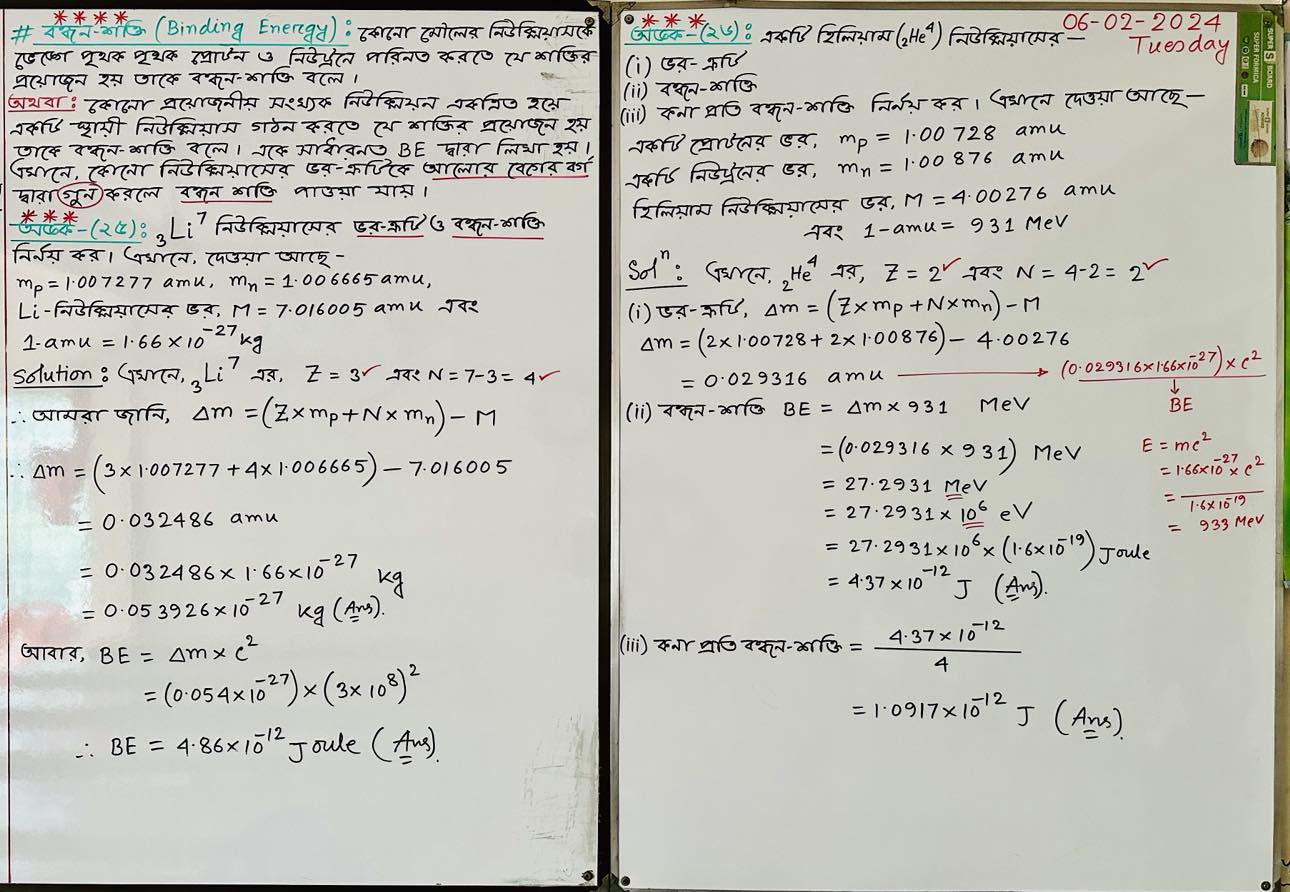 * * * *
# বন্ধন-শক্তি (Binding Energy): কোনো মৌলের নিউক্লিয়াসকে
ভেঙ্গে পৃথক পৃথক প্রোটন ও নিউট্রনে পরিনত করতে যে শক্তির
প্রয়োজন হয় তাকে বন্ধন-শক্তি বলে।
অথবা: কোনো প্রয়োজনীয় সংখ্যক নিউক্লিয়ন একত্রিত হয়ে
একটি স্থায়ী নিউক্লিয়াস গঠন করতে যে শক্তির প্রয়োজন হয়
তাকে বন্ধন-শক্তি বলে। একে সার্বারনত BE দ্বারা লিখা হয়।
এখানে, কোনো নিউক্লিয়াসের ভর-ত্রুটিকে আলোর বেগের বর্গ
দ্বারা গুন করলে বন্ধন শক্তি পাওয়া যায়।
* * *
অংক-(২৫): ₃Li⁷ নিউক্লিয়াসের ভর-ত্রুটি ও বন্ধন-শক্তি
নির্নয় কর। এখানে, দেওয়া আছে-
mp = 1.007277 amu, mn = 1.006665 amu,
Li-নিউক্লিয়াসের ভর, M = 7.016005 amu এবং
1-amu = 1.66×10⁻²⁷ kg
Solution: এখানে, ₃Li⁷ এর, Z = 3✓ এবং N = 7-3 = 4✓
∴ আমরা জানি, Δm = (Z×mp + N×mn) - M
∴ Δm = (3×1.007277 + 4×1.006665) - 7.016005
= 0.032486 amu
= 0.032486 × 1.66×10⁻²⁷ kg
= 0.053926×10⁻²⁷ kg (Ans).
আবার, BE = Δm × c²
= (0.054×10⁻²⁷) × (3×10⁸)²
∴ BE = 4.86×10⁻¹² Joule (Ans).
06-02-2024
Tuesday
* * *
অংক-(২৬): একটি হিলিয়াম (₂He⁴) নিউক্লিয়াসের-
(i) ভর-ত্রুটি
(ii) বন্ধন-শক্তি
(iii) কনা প্রতি বন্ধন-শক্তি নির্নয় কর। এখানে দেওয়া আছে-
একটি প্রোটনের ভর, mp = 1.00728 amu
একটি নিউট্রনের ভর, mn = 1.00876 amu
হিলিয়াম নিউক্লিয়াসের ভর, M = 4.00276 amu
এবং 1-amu = 931 MeV
Solⁿ: এখানে, ₂He⁴ এর, Z = 2✓ এবং N = 4-2 = 2✓
(i) ভর-ত্রুটি, Δm = (Z×mp + N×mn) - M
Δm = (2×1.00728 + 2×1.00876) - 4.00276
= 0.029316 amu → (0.029316×1.66×10⁻²⁷)×c²
↓
BE
(ii) বন্ধন-শক্তি BE = Δm × 931 MeV
= (0.029316 × 931) MeV
= 27.2931 MeV
= 27.2931 × 10⁶ eV
= 27.2931×10⁶ × (1.6×10⁻¹⁹) Joule
= 4.37×10⁻¹² J (Ans).
E = mc²
= 1.66×10⁻²⁷ × c²
= ―――
1.6×10⁻¹⁹
= 933 MeV
(iii) কনা প্রতি বন্ধন-শক্তি = 4.37×10⁻¹²
4
= 1.0917×10⁻¹² J (Ans).
SUPER S BOARD
SUPER FORMICA